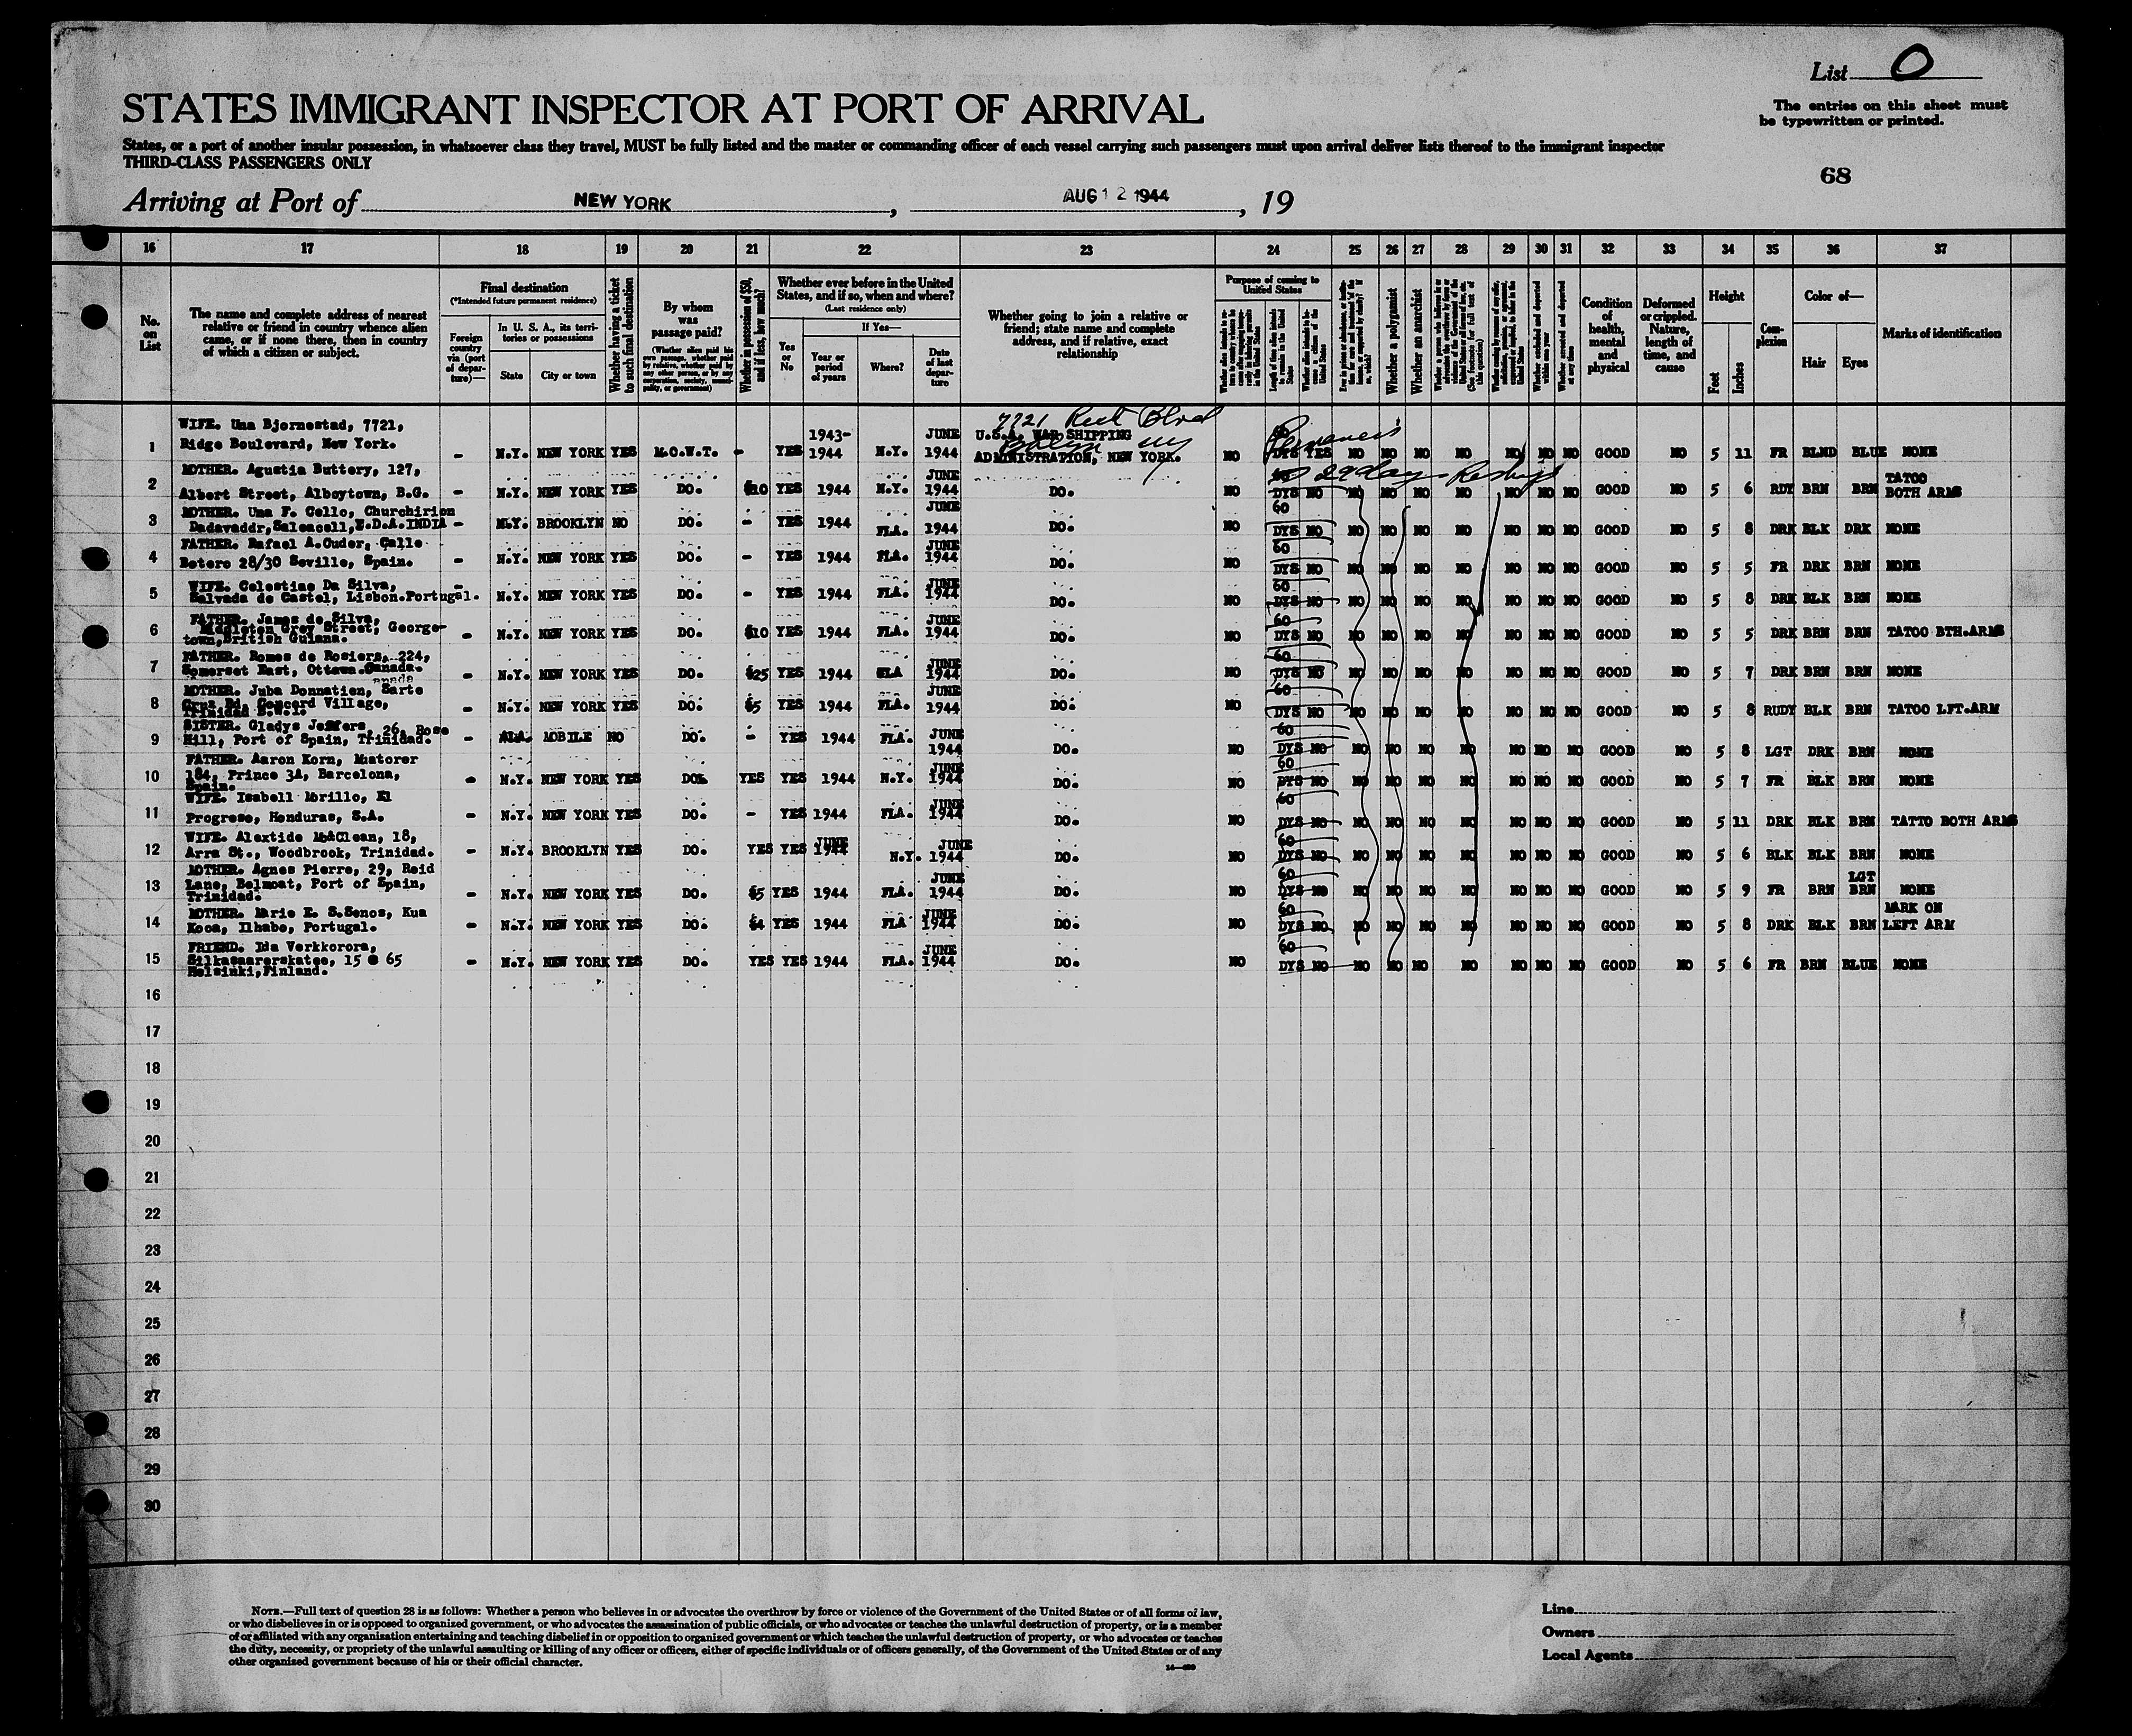 List O
The entries on this sheet must
be typewritten or printed.
STATES IMMIGRANT INSPECTOR AT PORT OF ARRIVAL
States, or a port of another insular possession, in whatsoever class they travel, MUST be fully listed and the master or commanding officer of each vessel carrying such passengers must upon arrival deliver lists thereof to the immigrant inspector
THIRD-CLASS PASSENGERS ONLY
68
Arriving at Port of NEW YORK, AUG 12 1944, 19
16 17 18 19 20 21 22 23 24 25 26 27 28 29 30 31 32 33 34 35 36 37
No. on List
The name and complete address of nearest
relative or friend in country whence alien
came, or if none there, then in country
of which a citizen or subject.
Final destination
(*Intended future permanent residence)
Foreign country via (port of departure)—
In U. S. A., its territories or possessions
State City or town
Whether having a ticket to such final destination
By whom was passage paid?
(Whether alien paid his own passage, whether paid by relative, whether paid by any other person, or by any corporation, society, municipality, or government)
Whether in possession of $50, and if less, how much?
Whether ever before in the United States, and if so, when and where?
(Last residence only)
Yes or No
If Yes—
Year or period of years
Where?
Date of last departure
Whether going to join a relative or
friend; state name and complete
address, and if relative, exact
relationship
Purpose of coming to United States
Length of time alien intends to remain in the United States
Whether alien intends to become a citizen of the United States
Whether a polygamist
Whether an anarchist
Whether excluded and deported within one year
Whether arrested and deported at any time
Condition of health, mental and physical
Deformed or crippled. Nature, length of time, and cause
Height
Feet Inches
Complexion
Color of—
Hair Eyes
Marks of identification
7721 Blvd
Permanent
1 WIFE. Una Bjornestad, 7721, Ridge Boulevard, New York. - N.Y. NEW YORK YES M.O.W.T. - YES 1943-1944 N.Y. JUNE 1944 U.S.A. WAR SHIPPING ADMINISTRATION, NEW YORK. NO 60 DYS YES NO NO NO NO NO NO NO GOOD NO 5 11 FR BLND BLUE NONE
29 days Reship
2 MOTHER. Agustia Buttery, 127, Albert Street, Alboytown, B.G. - N.Y. NEW YORK YES DO. $10 YES 1944 N.Y. JUNE 1944 DO. NO 60 DYS NO NO NO NO NO NO NO NO GOOD NO 5 6 RDY BRN BRN TATOO BOTH ARMS
3 MOTHER. Una F. Cello, Churchirion Dadavaddr, Saleacell, E.D.A. INDIA - N.Y. BROOKLYN NO DO. - YES 1944 FLA. JUNE 1944 DO. NO 60 DYS NO NO NO NO NO NO NO NO GOOD NO 5 8 DRK BLK DRK NONE
4 FATHER. Rafael A.Cuder, Calle Botero 28/30 Seville, Spain. - N.Y. NEW YORK YES DO. - YES 1944 FLA. JUNE 1944 DO. NO 60 DYS NO NO NO NO NO NO NO NO GOOD NO 5 5 FR DRK BRN NONE
5 WIFE. Celestine Da Silva, Salvada de Castel, Lisbon.Portugal. - N.Y. NEW YORK YES DO. - YES 1944 FLA. JUNE 1944 DO. NO 60 DYS NO NO NO NO NO NO NO NO GOOD NO 5 8 DRK BLK BRN NONE
6 FATHER. James de Silva, Middleton Grey Street, Georgetown, British Guiana. - N.Y. NEW YORK YES DO. $10 YES 1944 FLA. JUNE 1944 DO. NO 60 DYS NO NO NO NO NO NO NO NO GOOD NO 5 5 DRK BRN BRN TATOO BTH.ARMS
7 FATHER. Romes de Rosiers, 224, Somerset East, Ottawa.Canada. - N.Y. NEW YORK YES DO. $25 YES 1944 FLA JUNE 1944 DO. NO 60 DYS NO NO NO NO NO NO NO NO GOOD NO 5 7 DRK BRN BRN NONE
8 MOTHER. Juba Donnatien, Sarte Cruz Rd, Concord Village, Trinidad B.W.I. - N.Y. NEW YORK YES DO. $5 YES 1944 FLA. JUNE 1944 DO. NO 60 DYS NO NO NO NO NO NO NO NO GOOD NO 5 8 RUDY BLK BRN TATOO LFT.ARM
9 SISTER. Gladys Jeffers, 26, Rose Hill, Port of Spain, Trinidad. - ALA. MOBILE NO DO. - YES 1944 FLA. JUNE 1944 DO. NO 60 DYS NO NO NO NO NO NO NO NO GOOD NO 5 8 LGT DRK BRN NONE
10 FATHER. Aaron Korn, Muatorer 184, Prince 3A, Barcelona, Spain. - N.Y. NEW YORK YES DO. YES YES 1944 N.Y. JUNE 1944 DO. NO 60 DYS NO NO NO NO NO NO NO NO GOOD NO 5 7 FR BLK BRN NONE
11 WIFE. Isabell Morillo, El Progreso, Honduras, S.A. - N.Y. NEW YORK YES DO. - YES 1944 FLA. JUNE 1944 DO. NO 60 DYS NO NO NO NO NO NO NO NO GOOD NO 5 11 DRK BLK BRN TATTO BOTH ARMS
12 WIFE. Alextide McClean, 18, Arra St., Woodbrook, Trinidad. - N.Y. BROOKLYN YES DO. YES YES JUNE 1944 N.Y. JUNE 1944 DO. NO 60 DYS NO NO NO NO NO NO NO NO GOOD NO 5 6 BLK BLK BRN NONE
13 MOTHER. Agnes Pierre, 29, Reid Lane, Belmoat, Port of Spain, Trinidad. - N.Y. NEW YORK YES DO. $5 YES 1944 FLA. JUNE 1944 DO. NO 60 DYS NO NO NO NO NO NO NO NO GOOD NO 5 9 FR BRN LGT BRN NONE
14 MOTHER. Marie E. S.Senos, Kua Kooa, Ilhabo, Portugal. - N.Y. NEW YORK YES DO. $4 YES 1944 FLA JUNE 1944 DO. NO 60 DYS NO NO NO NO NO NO NO NO GOOD NO 5 8 DRK BLK BRN MARK ON LEFT ARM
15 FRIEND. Ida Verkkorora, Silkasaarerskatee, 15 @ 65 Helsinki,Finland. - N.Y. NEW YORK YES DO. YES YES 1944 FLA. JUNE 1944 DO. NO 60 DYS NO NO NO NO NO NO NO NO GOOD NO 5 6 FR BRN BLUE NONE
16
17
18
19
20
21
22
23
24
25
26
27
28
29
30
NOTE.—Full text of question 28 is as follows: Whether a person who believes in or advocates the overthrow by force or violence of the Government of the United States or of all forms of law,
or who disbelieves in or is opposed to organized government, or who advocates the assassination of public officials, or who advocates or teaches the unlawful destruction of property, or is a member
of or affiliated with any organization entertaining and teaching disbelief in or opposition to organized government or which teaches the unlawful destruction of property, or who advocates or teaches
the duty, necessity, or propriety of the unlawful assaulting or killing of any officer or officers, either of specific individuals or of officers generally, of the Government of the United States or of any
other organized government because of his or their official character.
Line
Owners
Local Agents